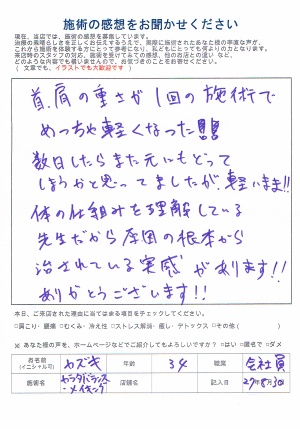 施術の感想をお聞かせください
現在、当店では、施術の感想を募集しています。
これから施術を体験する方にとって参考になり、私どもにとっても何よりの力となります。
来店時のスタッフの対応、施術を受けてみての感想、他のお店との違い など、
どのような内容でも構いませんので、お気づきのことをお寄せください。
( 文章でも、イラストでも大歓迎です )
首、肩の重さが1回の施術で
めっちゃ軽くなった!!!
数日したらまた元にもどって
しまうかと思ってましたが、軽いまま!!
体の仕組みを理解している
先生だから原因の根本から
治されている実感があります!!
ありがとうございます!!
本日、ご来店された理由に当てはまる項目をチェックしてください
□肩こり・腰痛 □むくみ・冷え性 □ストレス解消・癒し・デトックス □その他( )
※ あなた様の声を、ホームページなどでご紹介してもよろしいですか? □はい □匿名で □ダメ
お名前(イニシャル可) カズキ 年齢 34 職業 会社員
施術名 カラダバランス・メイキング 店舗名 記入日 27年8月30